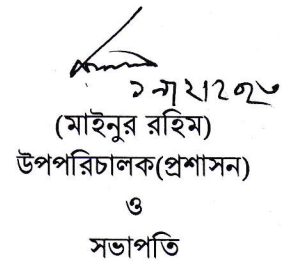 (মাইনুর রহিম)
উপপরিচালক(প্রশাসন)
ও
সভাপতি